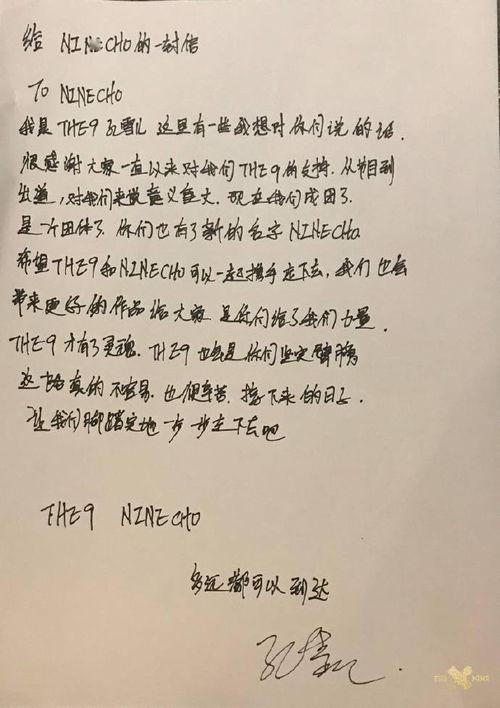 给 NINECHO的一封信
TO NINECHO
我是 THE9 孔雪儿 这里有一些我想对你们说的话.
很感谢大家一直以来对我们THE9的支持. 从节目到
出道, 对我们来说意义重大. 现在我们成团了.
是一个团体了. 你们也有了新的名字 NINECHO.
希望THE9和NINECHO可以一起携手走下去, 我们也会
带来更好的作品给大家 是你们给了我们力量.
THE9 才有了灵魂. THE9 也会是你们坚定臂膀
这一路真的不容易. 也很辛苦. 接下来的日子.
让我们脚踏实地一步一步走下去吧
THE9 NINECHO
多远都可以到达
孔雪儿
THE NINE